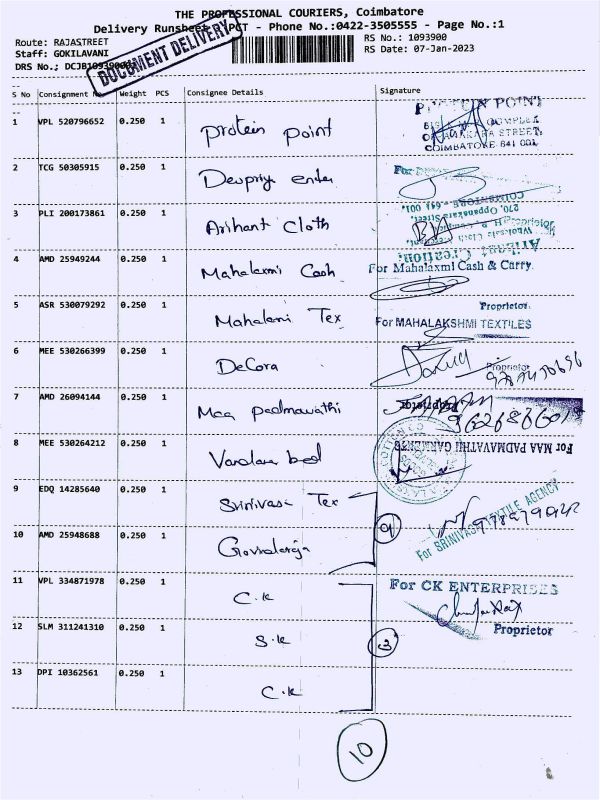 THE PROFESSIONAL COURIERS, Coimbatore
Delivery Runsheet - Phone No.:0422-3505555 - Page No.:1
DOCUMENT DELIVERY
Route: RAJASTREET
RS No.: 1093900
Staff: GOKILAVANI
RS Date: 07-Jan-2023
DRS No.;
S No Consignment Weight PCS Consignee Details Signature
1 VPL 520796652 0.250 1 Protein point
COMPLEX
STREET,
COIMBATORE 641 001
2 TCG 50305915 0.250 1 Devpriya enter
For
3 PLI 200173861 0.250 1 Arihant Cloth
COIMBATORE - 641 001.
270, Oppanakara Street,
Wholesale Cloth
Arihant Creation.
Proprietor
4 AMD 25949244 0.250 1 Mahalaxmi Cash
For Mahalaxmi Cash & Carry.
Proprietor
5 ASR 530079292 0.250 1 Mahalaxmi Tex
For MAHALAKSHMI TEXTILES
Proprietor
6 MEE 530266399 0.250 1 DeCora
7 AMD 26094144 0.250 1 Maa padmavathi
Proprietor
For MAA PADMAVATHI GARMENTS
8 MEE 530264212 0.250 1
9 EDQ 14285640 0.250 1 Srinivasa Tex
For SRINIVASA TEXTILE AGENCY
10 AMD 25948688 0.250 1
11 VPL 334871978 0.250 1 C.K
For CK ENTERPRISES
Proprietor
12 SLM 311241310 0.250 1 S.K
3
13 DPI 10362561 0.250 1 C.K
10